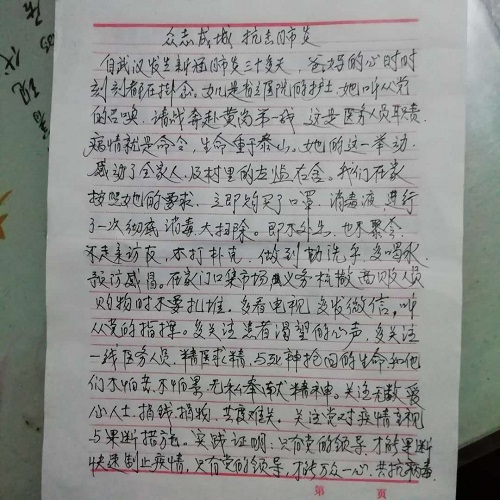 众志成城 抗击肺炎
自武汉发生新冠肺炎三十多天,爸妈的心时时
刻刻都在揪念。女儿是省立医院的护士,她听从党
的召唤,请战奔赴黄冈第一线,这是医务人员职责。
病情就是命令,生命重于泰山。她的这一举动,
感动了全家人,及村里的左邻右舍。我们在家
按照她的要求,立即购买了口罩,消毒液,进行
了一次彻底消毒大扫除。即不外出,也不聚会,
不走亲访友,不打扑克,做到勤洗手,多喝水,
预防感冒。在家门口集市场义务疏散西贝人员
购物时不要扎堆,多看电视,多发微信,听
从党的指挥。多关注患者渴望的心声,多关注
一线医务人员,精医求精,与死神抢回的生命和他
们不怕苦不怕累,无私奉献精神。关注无数爱
心人士,捐钱捐物,共度难关。关注党对疫情重视
与果断措施。实践证明:只有党的领导,才能果断
快速制止疫情,只有党的领导,才能万众一心,共抗病毒
第 页